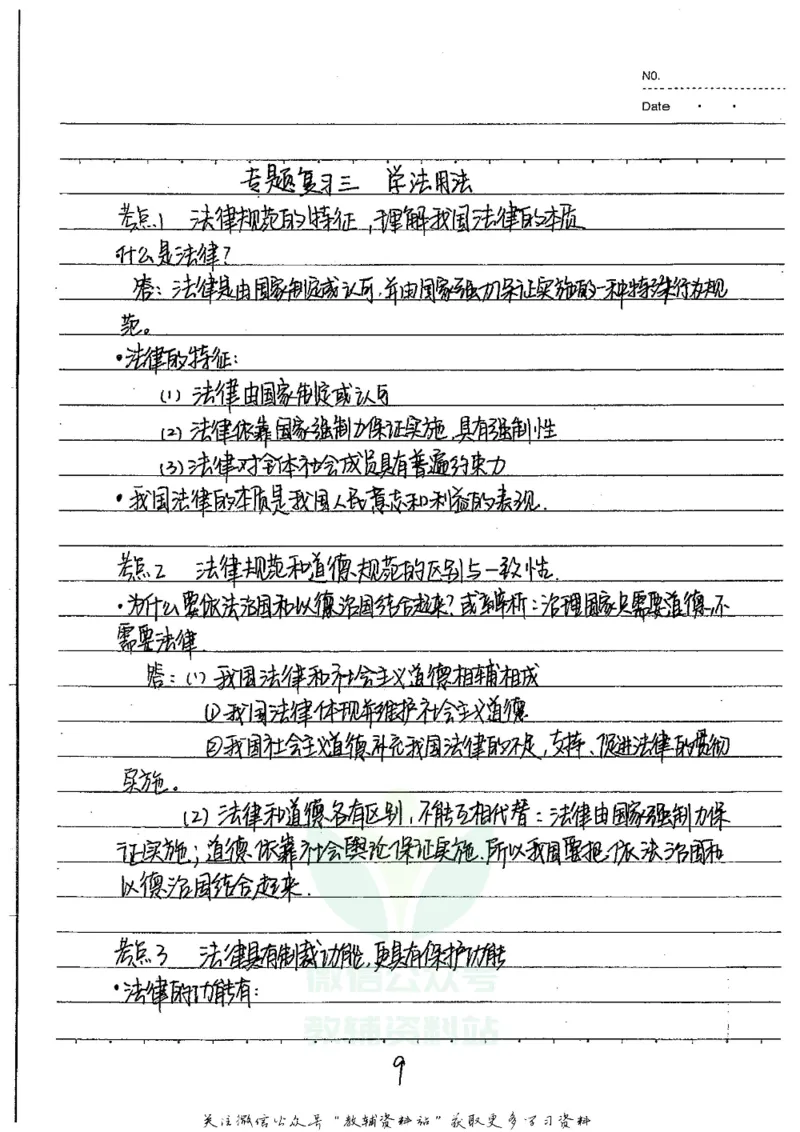 NO.
Date
专题复习三 学法用法
考点1 法律规范的特征，理解我国法律的本质
什么是法律?
答：法律是由国家制定或认可，并由国家强力保证实施的一种特殊行为规
范。
·法律的特征：
(1) 法律由国家制定或认可
(2) 法律依靠国家强制力保证实施，具有强制性
(3) 法律对全体社会成员具有普遍约束力
·我国法律的本质是我国人民意志和利益的表现.
考点2 法律规范和道德规范的区别与一致性.
·为什么要依法治国和以德治国结合起来? 或辨析：治理国家只需要道德，不
需要法律.
答：(1) 我国法律和社会主义道德相辅相成
①我国法律体现并维护社会主义道德
②我国社会主义道德补充我国法律的不足，支持、促进法律的贯彻
实施。
(2) 法律和道德各有区别，不能互相代替：法律由国家强制力保
证实施；道德依靠社会舆论保证实施.所以我国要把依法治国和
以德治国结合起来.
考点3 法律具有制裁功能，更具有保护功能
·法律的功能有：
微信公众号
教辅资料站
9
关注微信公众号"教辅资料站"获取更多学习资料